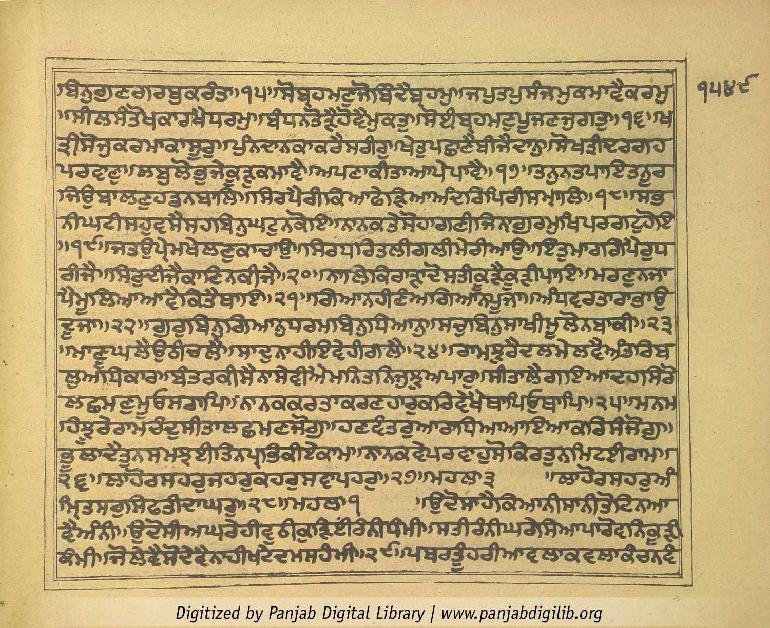 ੧੫੪੯
ਬਿਨੁਗੁਣਗਰਬੁਕਰੰਤਾ॥੧੫॥ਸੋਬ੍ਰਹਮਣੁਜੋਬਿੰਦੈਬ੍ਰਹਮੁ॥ਜਪੁਤਪੁਸੰਜਮੁਕਮਾਵੈਕਰਮੁ
॥ਸੀਲਸੰਤੋਖਕਾਰਖੈਧਰਮੁ॥ਬੰਧਨਤੋੜੈਹੋਵੈਮੁਕਤੁ॥ਸੋਈਬ੍ਰਹਮਣੁਪੂਜਣਜੁਗਤੁ॥੧੬॥ਖ
ਤ੍ਰੀਸੋਜੁਕਰਮਾਕਾਸੂਰੁ॥ਪੁੰਨਦਾਨਕਾਕਰੈਸਰੀਰੁ॥ਖੇਤੁਪਛਾਣੈਬੀਜੈਦਾਨੁ॥ਸੋਖਤ੍ਰੀਦਰਗਹ
ਪਰਵਾਣੁ॥ਲਬੁਲੋਭੁਜੇਕੂੜੁਕਮਾਵੈ॥ਅਪਣਾਕੀਤਾਆਪੇਪਾਵੈ॥੧੭॥ਤਨੁਨਤਪਾਇਤਨੂਰ
ਜਿਉਬਾਲਣੁਹਡਨਬਾਲਿ॥ਸਿਰਪੈਰੀਕਿਆਫੇੜਿਆਅੰਦਰਿਪਿਰੀਸਮਾਲਿ॥੧੮॥ਸਭ
ਨੀਘਟੀਸਹੁਵਸੈਸਹਬਿਨੁਘਟੁਨਕੋਇ॥ਨਾਨਕਤੇਸੋਹਾਗਣੀਜਿਨਾਗੁਰਮੁਖਿਪਰਗਟੁਹੋਇ
॥੧੯॥ਜਤਉਪ੍ਰੇਮਖੇਲਣਕਾਚਾਉ॥ਸਿਰਧਰਿਤਲੀਗਲੀਮੇਰੀਆਉ॥ਇਤੁਮਾਰਗਿਪੈਰੁਧ
ਰੀਜੈ॥ਸਿਰੁਦੀਜੈਕਾਣਿਨਕੀਜੈ॥੨੦॥ਨਾਲਿਕਿਰਾੜਾਦੋਸਤੀਕੂੜੈਕੂੜੀਪਾਇ॥ਮਰਣੁਨਜਾ
ਪੈਮੂਲਿਆਆਵੈਕਿਤੈਥਾਇ॥੨੧॥ਗਿਆਨਹੀਣੰਅਗਿਆਨਪੂਜਾ॥ਅੰਧਵਰਤਾਵਾਭਾਉ
ਦੂਜਾ॥੨੨॥ਗੁਰਬਿਨੁਗਿਆਨੁਧਰਮਬਿਨੁਧਿਆਨੁ॥ਸਚਬਿਨੁਸਾਖੀਮੂਲੋਨਬਾਕੀ॥੨੩
॥ਮਾਣੂਘਲੈਉਠੀਚਲੈ॥ਸਾਦੁਨਾਹੀਇਵੇਹੀਗਲੈ॥੨੪॥ਰਾਮੁਝੁਰੈਦਲਮੇਲਵੈਅੰਤਰਿਬ
ਲੁਅਧਿਕਾਰ॥ਬੰਤਰਕੀਸੈਨਾਸੇਵੀਐਮਨਿਤਨਿਜੁਝੁਅਪਾਰੁ॥ਸੀਤਾਲੈਗਇਆਦਹਸਿਰੋ
ਲਛਮਣੁਮੂਓਸਰਾਪਿ॥ਨਾਨਕਕਰਤਾਕਰਣਹਾਰੁਕਰਿਵੇਖੈਥਾਪਿਉਥਾਪਿ॥੨੫॥ਮਨਮ
ਹਿਝੂਰੈਰਾਮਚੰਦੁਸੀਤਾਲਛਮਣਜੋਗੁ॥ਹਣਵੰਤਰੁਆਰਾਧਿਆਆਇਆਕਰਿਸੰਜੋਗੁ॥
ਭੂਲਾਦੈਤੁਨਸਮਝਈਤਿਨਪ੍ਰਭਕੀਏਕਾਮ॥ਨਾਨਕਵੇਪਰਵਾਹੁਸੋਕਿਰਤੁਨਮਿਟਈਰਾਮ॥
੨੬॥ਲਾਹੌਰਸਹਰੁਜਹਰੁਕਹਰੁਸਵਾਪਹਰੁ॥੨੭॥ਮਹਲਾ੩ ॥ਲਾਹੌਰਸਹਰੁਅੰ
ਮ੍ਰਿਤਸਰੁਸਿਫਤੀਦਾਘਰੁ॥੨੮॥ਮਹਲਾ੧ ॥ਉਦੋਸਾਹੈਕਿਆਨੀਸਾਨੀਤੋਟਿਨਆ
ਵੈਅੰਨੀ॥ਉਦੋਸੀਅਘਰੇਹੀਵੁਠੀਕੁੜਿੲੀਂਰੰਨੀਧੰਮੀ॥ਸਤੀਰੰਨੀਘਰੇਸਿਆਪਾਰੋਵਨਿਕੂੜੀ
ਕੰਮੀ॥ਜੋਲੇਵੈਸੋਦੇਵੈਨਾਹੀਖਟੇਦਮਸਹੰਮੀ॥੨੯॥ਪਬਰਤੂੰਹਰੀਆਵਲਾਕਵਲਾਕੰਚਨਵੰ
Digitized by Panjab Digital Library | www.panjabdigilib.org